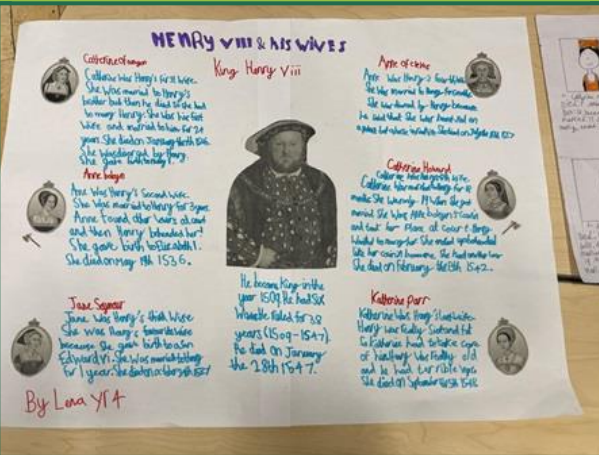 HENRY VIII & his WIVES
King Henry Viii
Catherine of aragon
Catherine was Henry's first wife.
She was married to Henry's
brother but then he died so she had
to marry Henry. She was his first
wife and married to him for 24
years. She died on January
She was divorced by Henry.
She gave birth to
Anne boleyn
Anne was Henry's Second wife.
She was married to Henry for 3 years
Anne found other lovers at court
and then Henry beheaded her!
She gave birth to Elizabeth 1.
She died on may 19th 1536.
Jane Seymour
Jane was Henry's third wife
She was Henry's favourite wife
because She gave birth to a son
Edward vi. She was married to Henry
for 1 year. She died on
He became King in the
year 1509. He had Six
Ruled for 38
years (1509-1547).
He died on January
the 28th 1547.
Anne of cleves
Anne was Henry's fourth wife
She was married to Henry for 6 months
She was divorced by Henry because
he said that She was
She died on
Catherine Howard
Catherine was Henry's 5th wife.
Catherine was married to Henry for 18
months She was only 19 when She got
married. She was Anne boleyn's Cousin
and
place at court. Henry
wanted to marry her. She
She died on February the 13th 1542.
Katherine Parr
Katherine was Henry's last wife.
Henry was Really Sick and fat
So Katherine had to take care
of him. Henry was Really old
and he had terrible legs.
She died on September 5th 1548
By Lena Yr 4